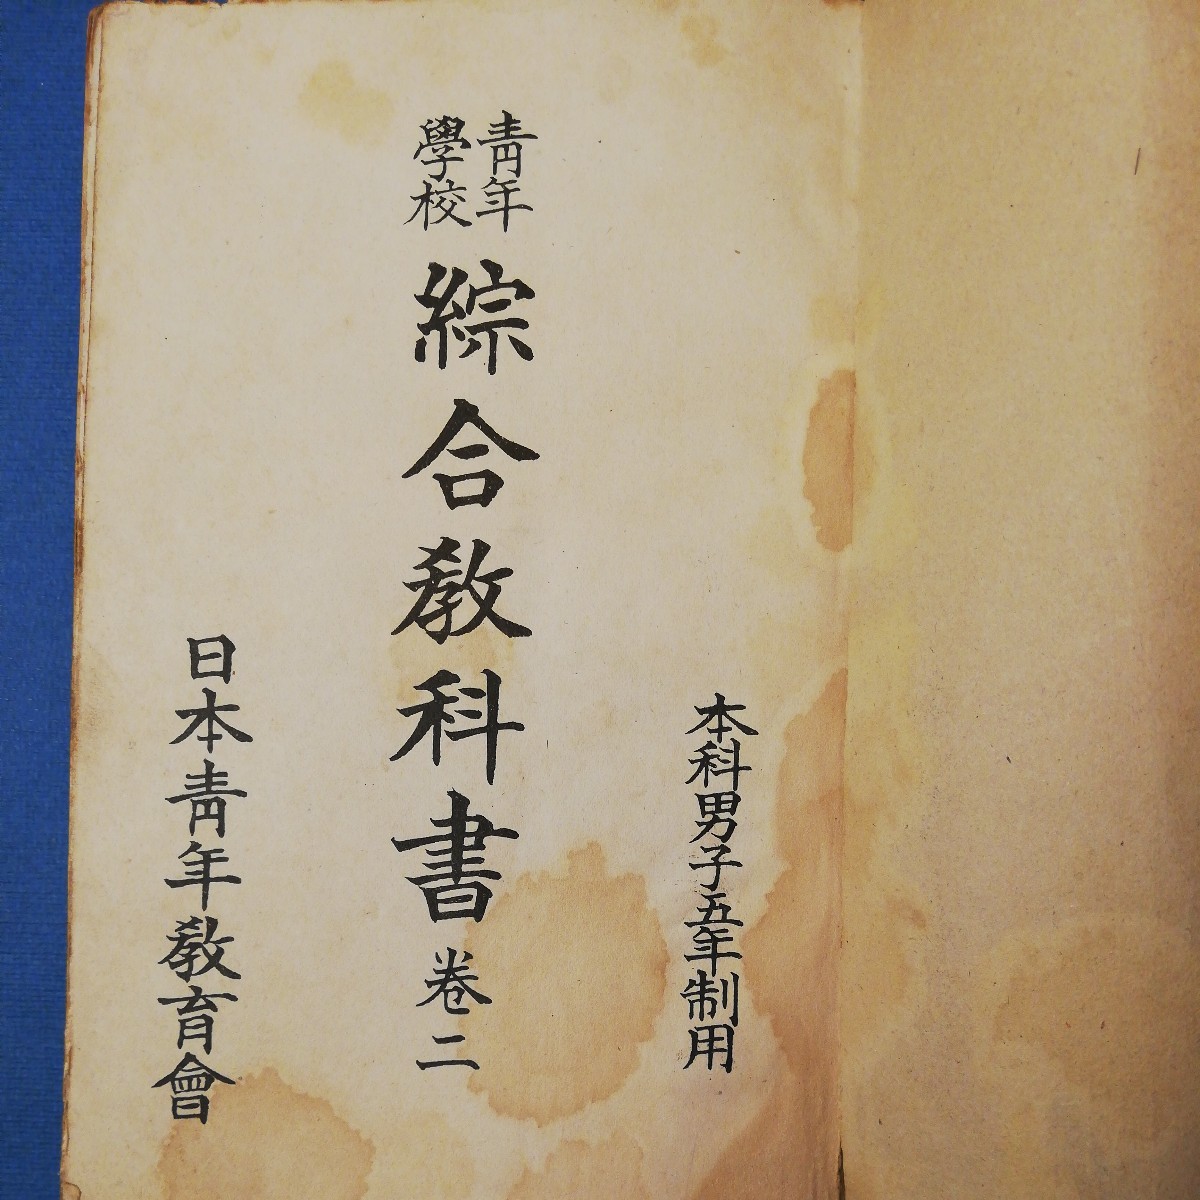 本科男子五年制用
青年學校 綜合教科書 卷二
日本青年教育會